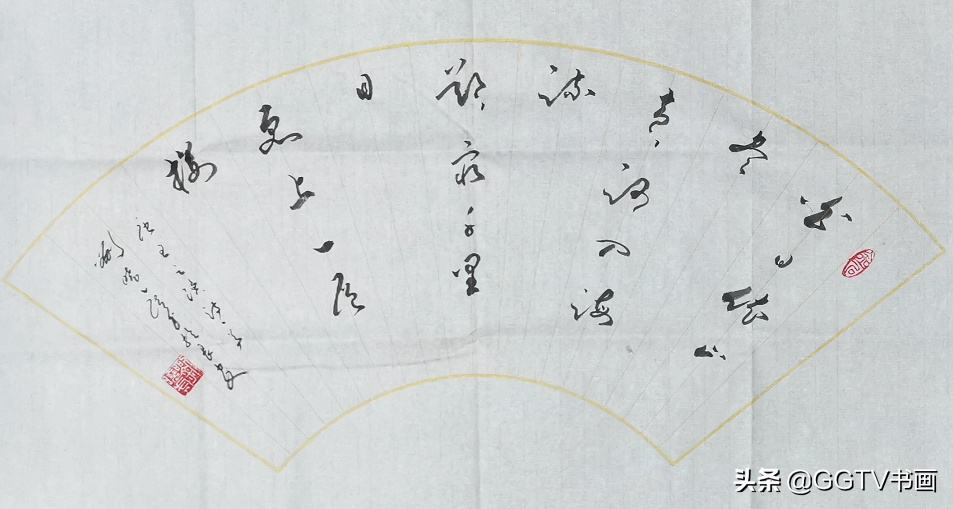 白日依山
尽
黄河入海
流
欲穷千里
目
更上一层
楼
王之涣诗
头条 @GGTV书画